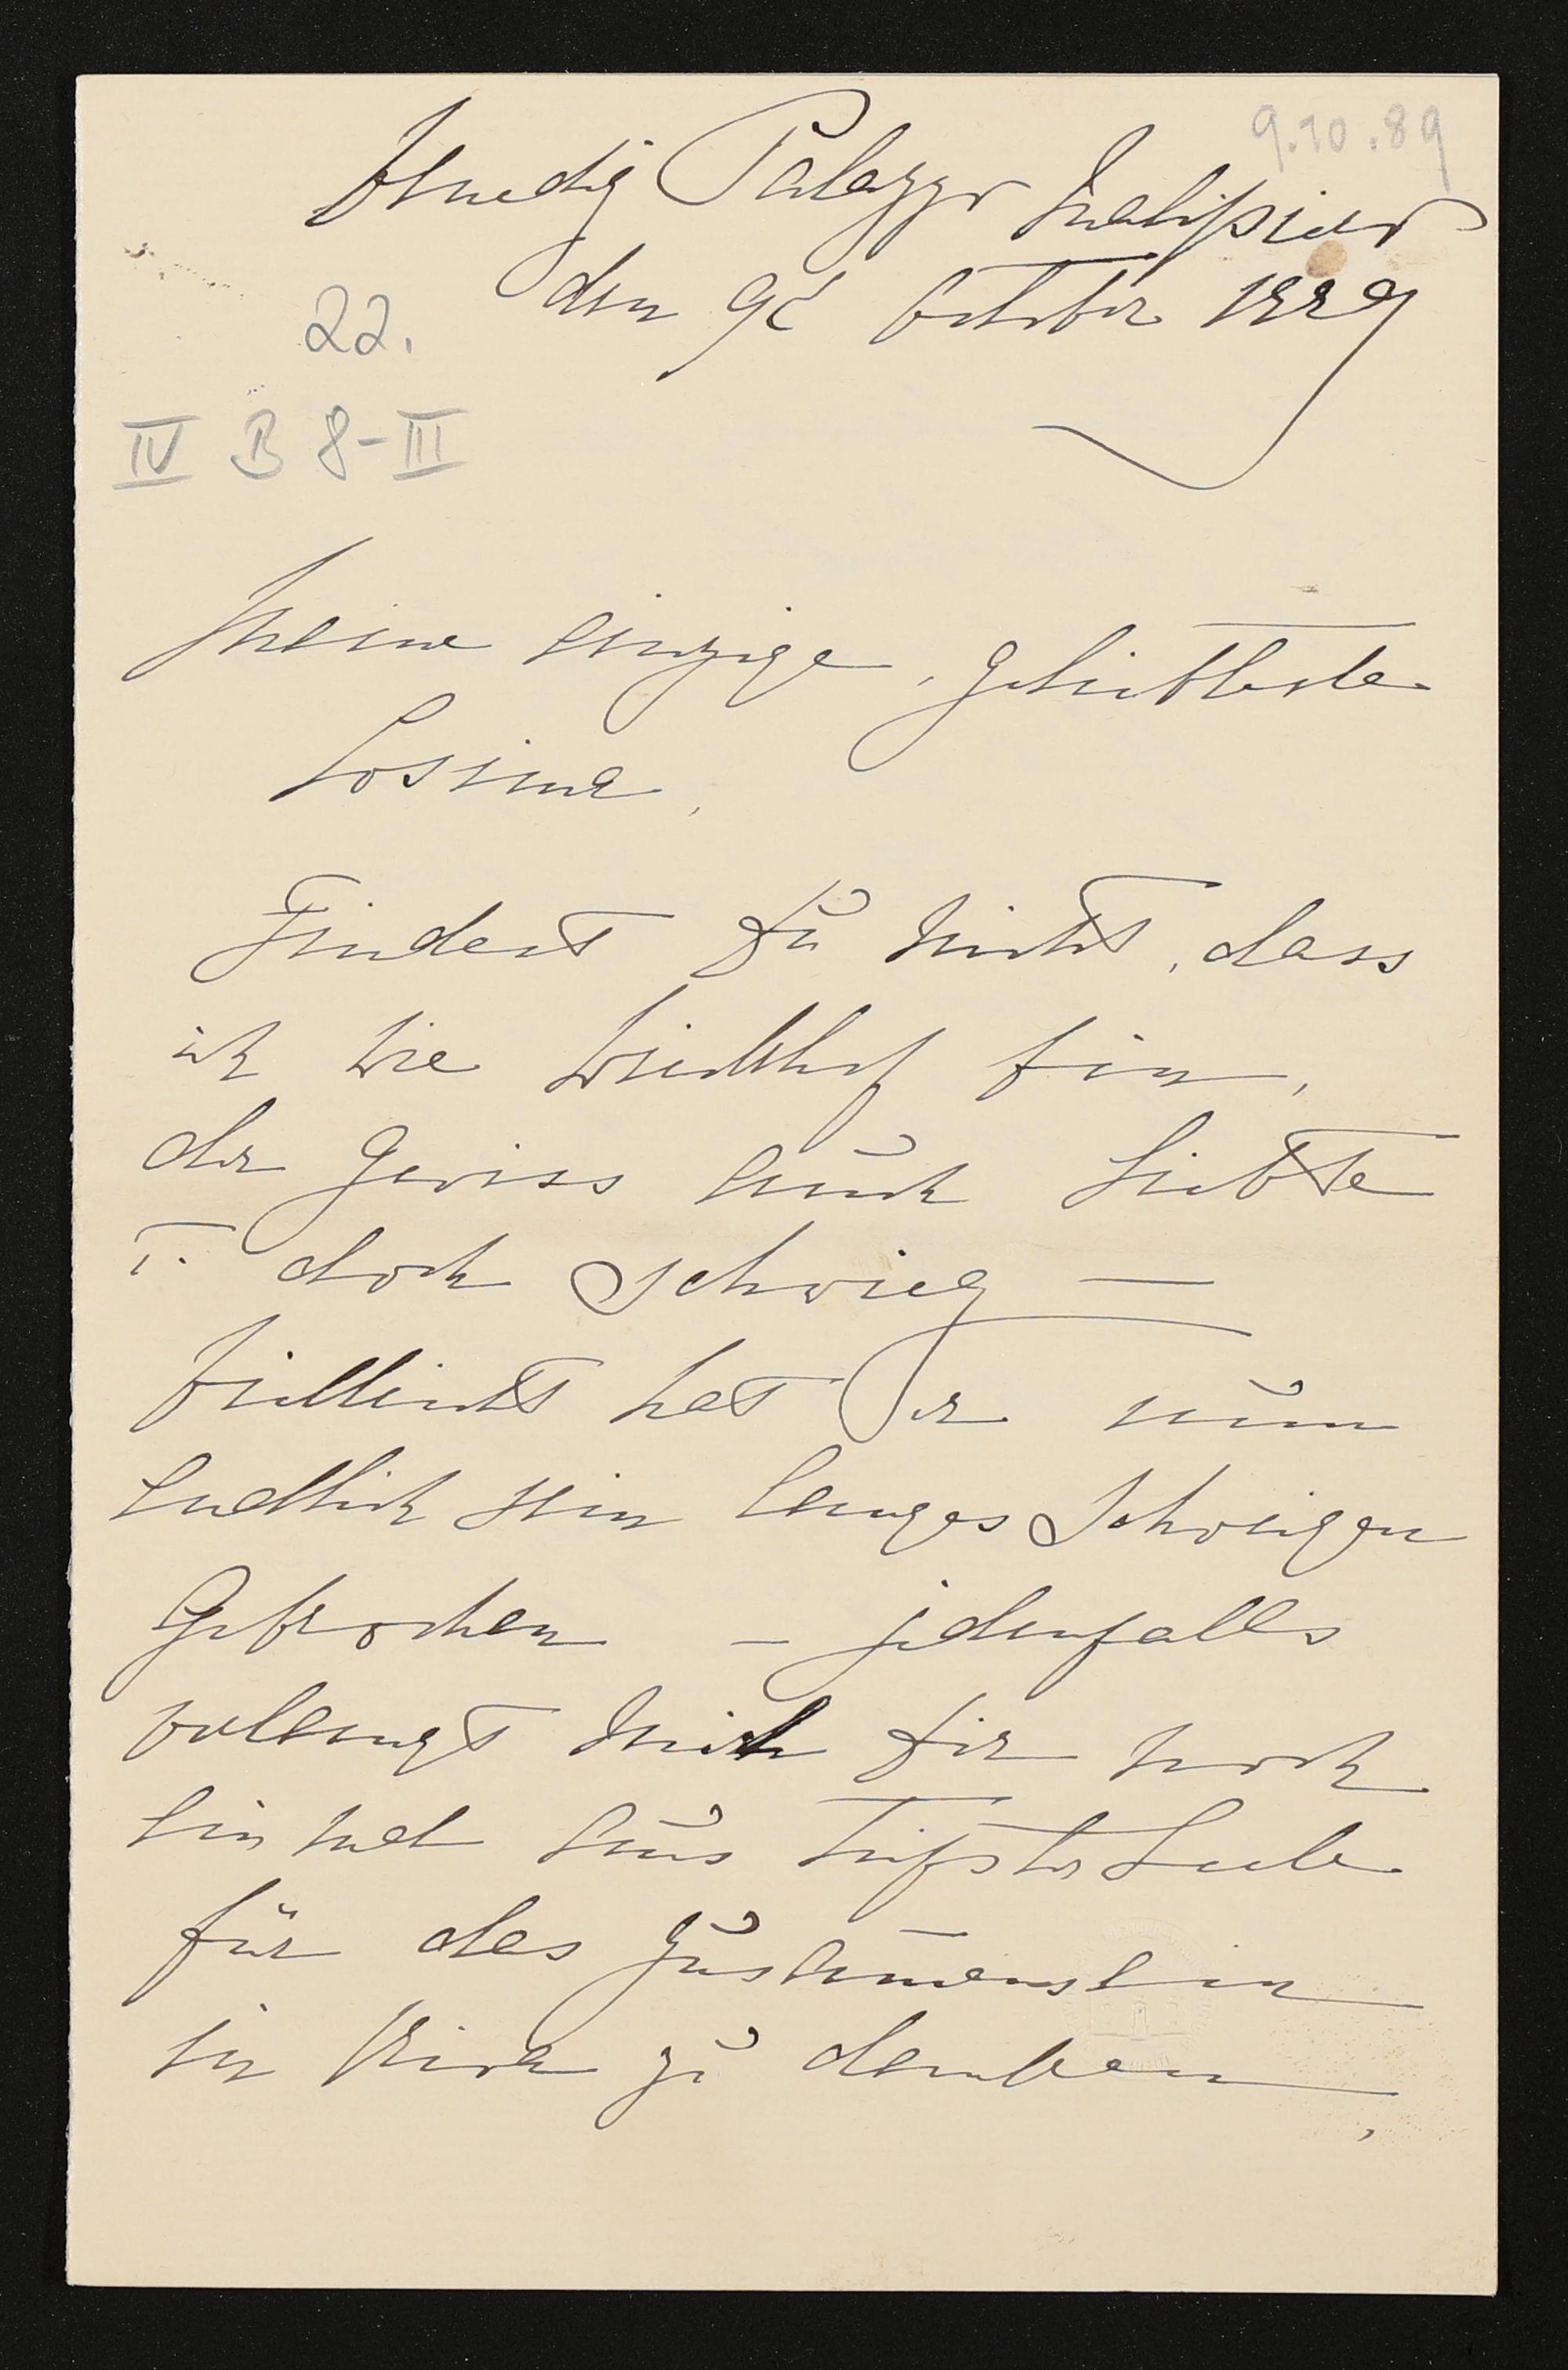 9.10.89
Venedig Palazzo Malipiero
den 9t October 1889
22.
IV B 8-III
Meine einzige, geliebteste
Cosima,
Findest Du nicht, dass
ich wie bin,
der gewiss auch liebte
u. doch schwieg —
Vielleicht hat Er nun
endlich sein langes Schweigen
Gebrochen – jedenfalls
verlangt mich Dir noch
ein Mal aus tiefster Seele
für das Zusamensein
in Riva zu danken,